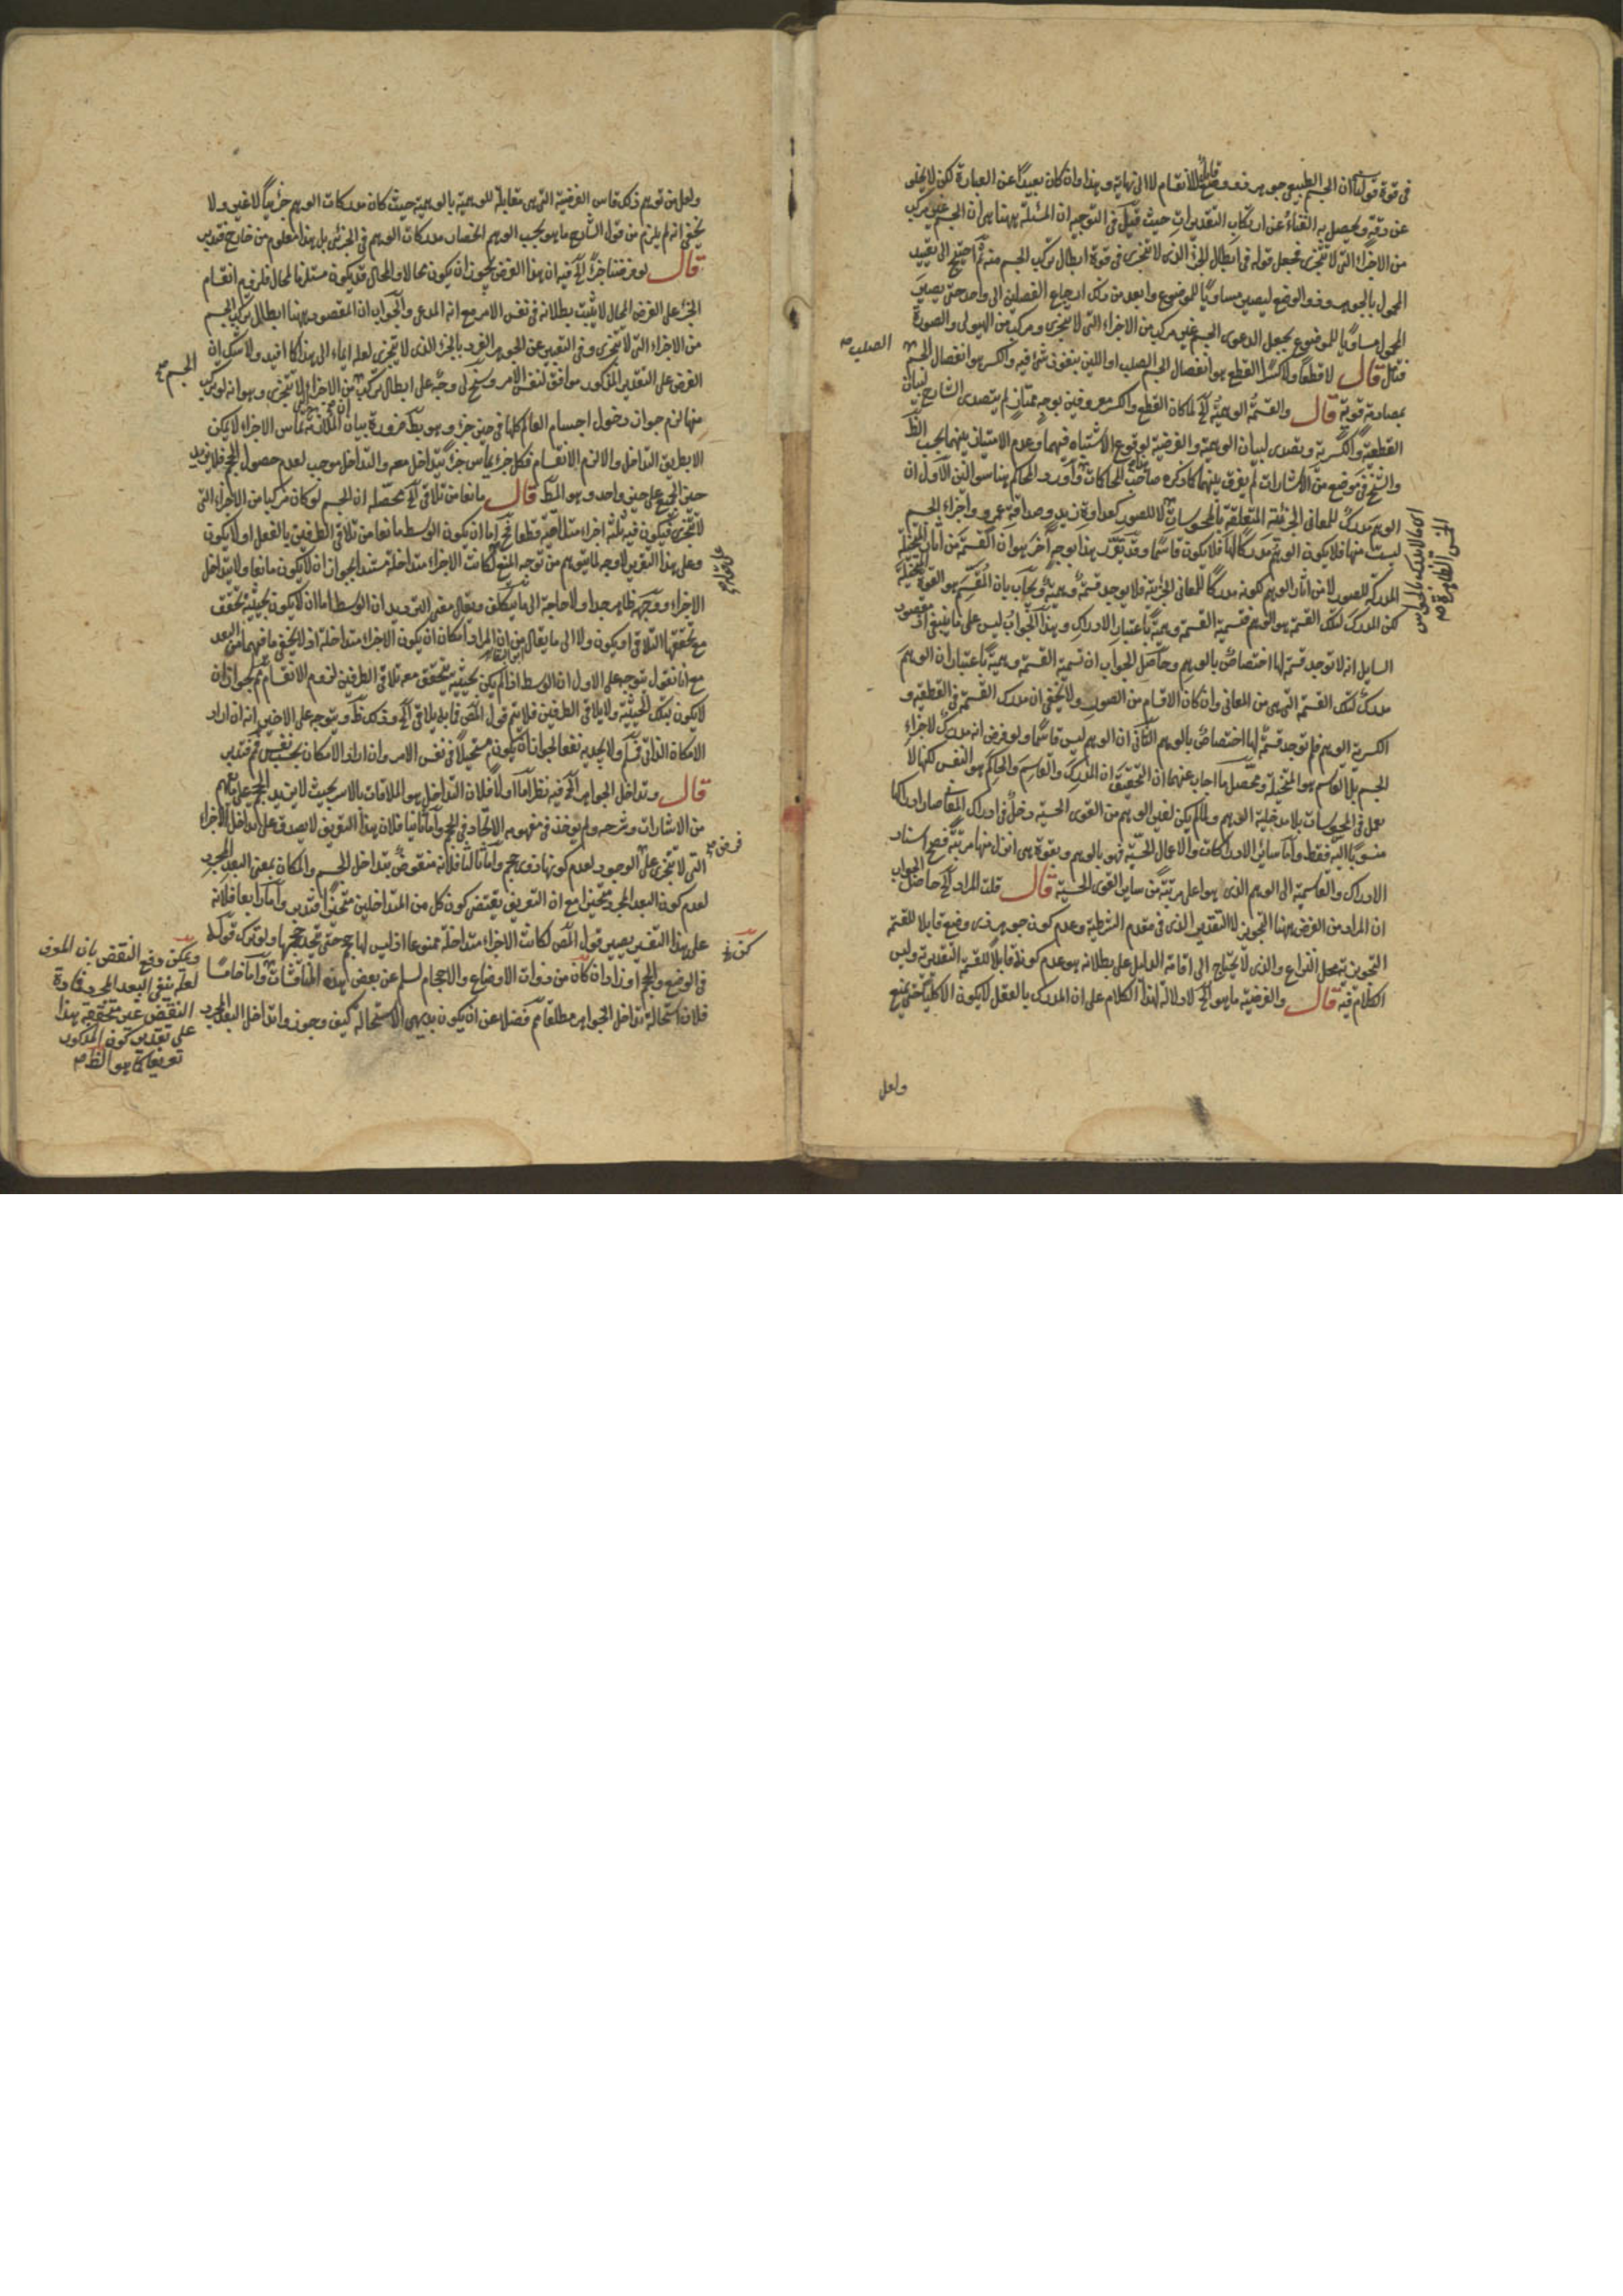 فى قوة قولنا ان الجسم الطبيعى جوهر ذو وضع قابل للانقسام لا الى نهاية وهذا وان كان بعيدا عن العبارة لكن لا يخلو
عن دقة ويحصل به الغناء عن ارتكاب التقديرات حيث قيل فى التوجيه ان المسئلة ههنا هى ان الجسم غير مركب
من الاجزاء التى لا تتجزى فجعل قوله فى ابطال الجزء الذى لا يتجزى فى قوة ابطال تركب الجسم منه ثم احتيج الى تقييد
المحمول بالجوهر وذو الوضع ليصير مساويا للموضوع وابعد من ذلك ارجاع الفصلين الى واحد حتى يصير
المحمول مساويا للموضوع بجعل الدعوى الجسم غير مركب من الاجزاء التى لا تتجزى ومركب من الهيولى والصورة
فتأمل قال لا قطعا ولا كسرا القطع هو انفصال الجسم الصلب او اللين بنفوذ شئ فيه والكسر هو انفصال الجسم
الصلب صح
بمصادمة قوية قال والقسمة الوهمية الخ لما كان القطع والكسر معروفين بوجه ممتاز لم يتصدى الشارح لبيان
القطعية والكسرية وتصدى لبيان الوهمية والفرضية لوقوع الاشتباه فيهما وعدم الامتياز بينهما بحسب الظ
والشيخ فى موضع من الاشارات لم يفرق بينهما كما ذكره صاحب المحاكات واورد المحاكم هنا سؤالين الاول ان
الوهم مدرك للمعانى الجزئية المتعلقة بالمحسوسات لا للصور كعداوة زيد وصداقة عمرو واجزاء الجسم
ليست منها فلا يكون الوهم مدركا لها فلا يكون قاسما وقد يقرر هذا بوجه آخر هو ان القسمة من آثار المتخيلة
المدركة للصور لا من آثار الوهم لكونه مدركا للمعانى الجزئية فلا يوجد قسمة وهمية ويجاب بان المقسم هو القوة المتخيلة
لكن المدرك لتلك القسمة هو الوهم فتسمية القسمة وهمية باعتبار الادراك وهذا الجواب ليس على ما ينبغى اذ مقصود
السايل انه لا توجد قسمة لها اختصاص بالوهم وحاصل الجواب ان تسمية القسمة وهمية باعتبار ان الوهم
مدرك لتلك القسمة التى هى من المعانى وان كان الاقسام من الصور ولا يخفى ان مدرك القسمة فى القطعية و
الكسرية الوهم فلم توجد قسمة لها اختصاص بالوهم الثانى ان الوهم ليس قاسما ولو فرض انه مدرك لاجزاء
الجسم بل القاسم هو المتخيلة ومحصل ما اجاب عنهما ان التحقيق ان المدرك والقاسم والحاكم هو النفس لكنها لا
تعمل فى المحسوسات بلا مدخلية الوهم ولما لم يكن لغير الوهم من القوى الحسية دخل فى ادراك المعانى صار ادراكها
منسوبا اليه فقط واما سائر الادراكات والاعمال الحسية فهو بالوهم وبقوة هى انزل منها مرتبة فصح اسناد
الادراك والقاسمية الى الوهم الذى هو اعلى مرتبة من ساير القوى الحسية قال قلت المراد الخ حاصل الجواب
ان المراد من الفرض ههنا التجويز لا التقدير الذى فى مقدم الشرطية وعدم كون جوهر ذى وضع قابلا للقسمة
التجويزية محل النزاع والذى لا يحتاج الى اقامة الدليل على بطلانه هو عدم كونه قابلا للقسمة التقديرية وليس
الكلام فيه قال والفرضية ما هو الخ لا دلالة لهذا الكلام على ان المدرك بالعقل لا يكون الا كليا حتى يمنع
ولعل
ولعل من توهم ذلك قاس الفرضية التى هى مقابلة للوهمية بالوهمية حيث كان مدركات الوهم جزئيا لا غير ولا
يخفى انه لم يلزم من قول الشارح ما هو بحسب الوهم انحصار مدركات الوهم فى الجزئى بل هذا معلوم من خارج فتدبر
قال لو فرضنا جزءا الخ فيه ان هذا الفرض يجوز ان يكون محالا والمحال قد يكون مستلزما لمحال فلزوم انقسام
الجزء على الفرض المحال لا يثبت بطلانه فى نفس الامر مع انه المدعى والجواب ان المقصود ههنا ابطال تركب الجسم
من الاجزاء التى لا تتجزى وفى التعبير عن الجوهر الفرد بالجزء الذى لا يتجزى لعله ايماء الى هذا كما افيد ولا شك ان
الفرض على التقدير المذكور موافق لنفس الامر وسنح لى وجه على ابطال تركب من الاجزاء لا تتجزى وهو انه لو تركب
الجسم صح
منها لزم جواز دخول اجسام العالم كلها فى حيز جزء وهو بط ضرورة بيان الملازمة ان تماس الاجزاء لا يمكن
الا بطريق التداخل والا لزم الانقسام فكل جزء يماس جزءا يتداخل معه والتداخل موجب لعدم حصول الحجم فلا يزيد
حيز الجميع على حيز واحد وهو المط قال مانعا من تلاقى الخ محصله ان الجسم لو كان مركبا من الاجزاء التى
لا تتجزى فيكون فيه ثلثة اجزاء متلاقية قطعا فح اما ان يكون الوسط مانعا من تلاقى الطرفين بالفعل او لا يكون
وعلى هذا التقرير لا وجه لما يتوهم من توجه المنع لكانت الاجزاء متداخلة مستندا بجواز ان لا يكون مانعا ولا يتداخل
الاجزاء ووجهه ظاهر جدا ولا حاجة الى ما يتكلف ويقال معنى الترديد ان الوسط اما ان لا يكون بحيثية تحقق
مع تحققها التلاقى او يكون ولا الى ما يقال من ان المراد امكان ان يكون الاجزاء متداخلة اذ لا يخفى ما فيهما من البعد
مع انا نقول يتوجه على الاول ان الوسط اذا لم يكن بحيثية يتحقق معه تلاقى الطرفين لزوم الانقسام ثم لجواز ان
لا يكون بتلك الحيثية ولا يلاقى الطرفين فلا يتم قول المص فما به يلاقى الخ وذلك ظ ويتوجه على الاخير انه ان اراد
الامكان الذاتى فسلم ولا يجديه نفعا لجواز ان يكون مستحيلا فى نفس الامر وان اراد الامكان بحسب نفس فم فتدبر
قال وتداخل الجواهر الخ فيه نظر اما اولا فلان التداخل هو الملاقات بالاسر بحيث لا يزيد الحجم على ما يفهم
من الاشارات وشرحه ولم يؤخذ فى مفهومه الاتحاد فى الحجم واما ثانيا فلان هذا التعريف لا يصدق على تداخل الاجزاء
التى لا تتجزى على الوجود لعدم كونها ذوى حجم واما ثالثا فلانه منقوض بتداخل الجسم والمكان بمعنى البعد المجرد
فرض صح
لعدم كون البعد المجرد متحيزا مع ان التعريف يقتضى كون كل من المتداخلين متحيزا فتدبر واما رابعا فلانه
على هذا التقدير يصير قول المص لكانت الاجزاء متداخلة ممنوعا اذ ليس لها حجم حتى يتحد حجمها ولو ترك قوله
فى الوضع والحجم او زاد ان كان من ذوات الاوضاع والاحجام لسلم عن بعض هذه المناقشات واما خامسا
فلان استحالة تداخل الجواهر مطلقا مم فضلا عن ان يكون بديهى الاستحالة كيف وجوزوا تداخل البعد المجرد
ويمكن دفع النقض بان المعرف
لعله ينفى البعد المجرد فمادة
النقض غير متحققة هذا
على تقدير كون المذكور
تعريفا كما هو الظ صح